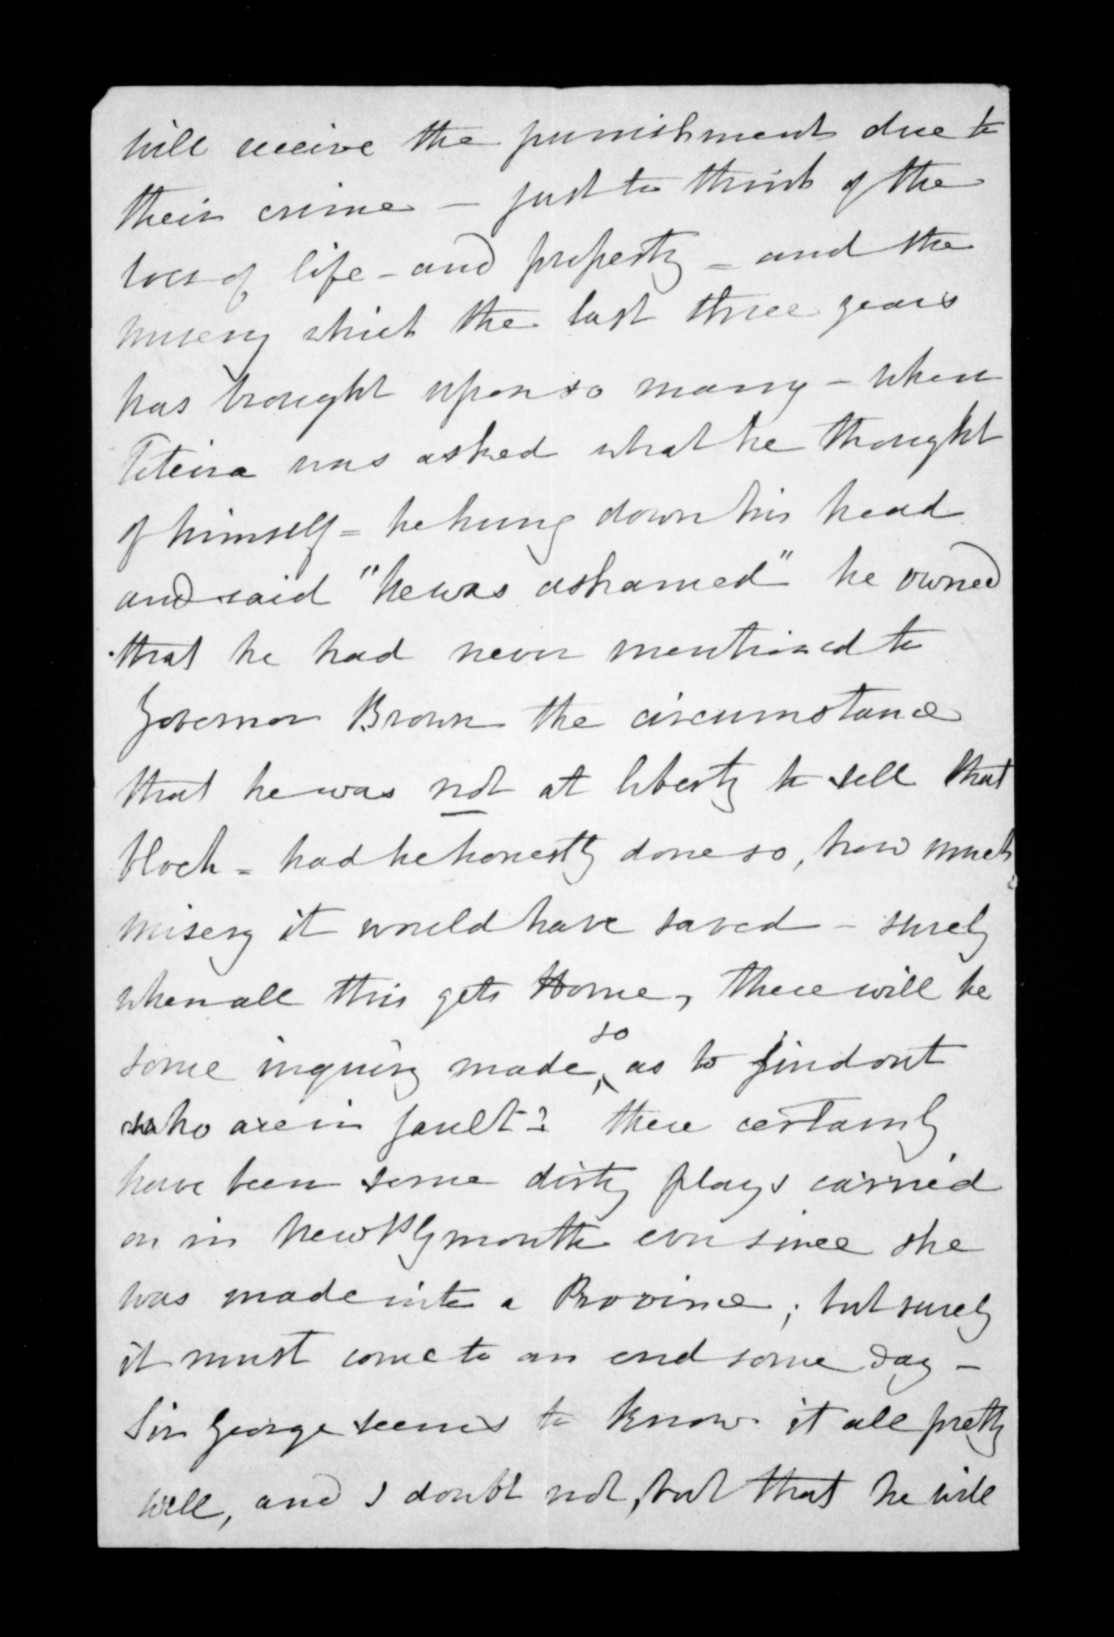 will receive the punishment due to
their crime - just to think of the
loss of life - and property - and the
misery which the last three years
has brought upon so many - when
Teteira was asked what he thought
of himself = he hung down his head
and said "he was ashamed" he owned
that he had never mentioned to
Governor Brown the circumstance
that he was not at liberty to sell that
block = had he honestly done so, how much
misery it would have saved - surely
when all this gets Home, there will be
some inquiry made, so as to find out
who are in fault? there certainly
have been some dirty plays carried
on in New Plymouth ever since she
was made into a Province; but surely
it must come to an end some day -
Sir George seems to know it all pretty
well, and I doubt not, but that he will